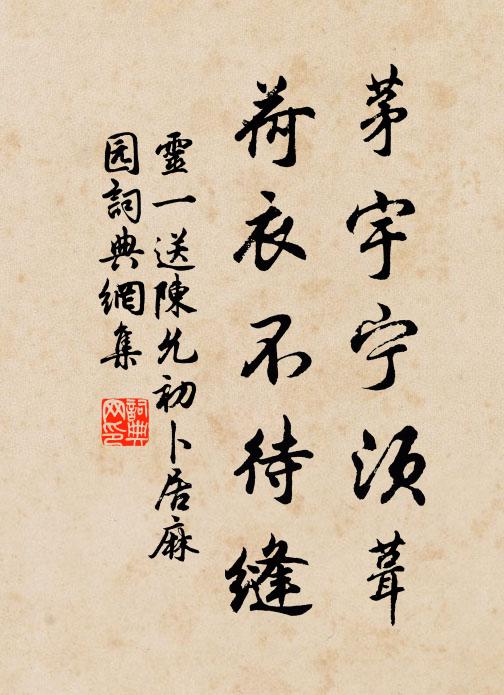 茅宇宁須葺
荷衣不待縫
靈一送陳允初卜居麻
园詞典網集
詞典网印